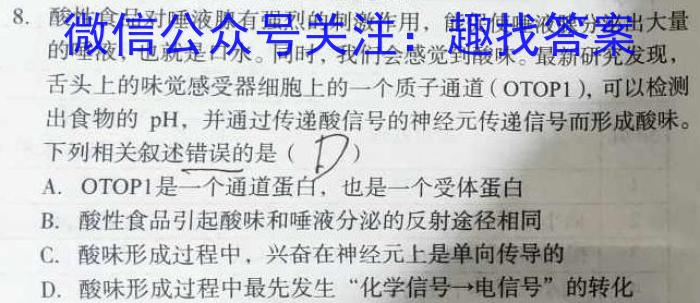 8. 酸性食品对唾液腺有强烈的刺激作用，能 使唾液 分 出大量
微信公众号关注：趣找答案
的唾液，也就是口水。同时，我们会感觉到酸味。最新研究发现，
舌头上的味觉感受器细胞上的一个质子通道（OTOP1），可以检测
出食物的 pH，并通过传递酸信号的神经元传递信号而形成酸味。
下列相关叙述错误的是（ D ）
A. OTOP1是一个通道蛋白，也是一个受体蛋白
B. 酸性食品引起酸味和唾液分泌的反射途径相同
C. 酸味形成过程中，兴奋在神经元上是单向传导的
D. 酸味形成过程中最先发生“化学信号→电信号”的转化